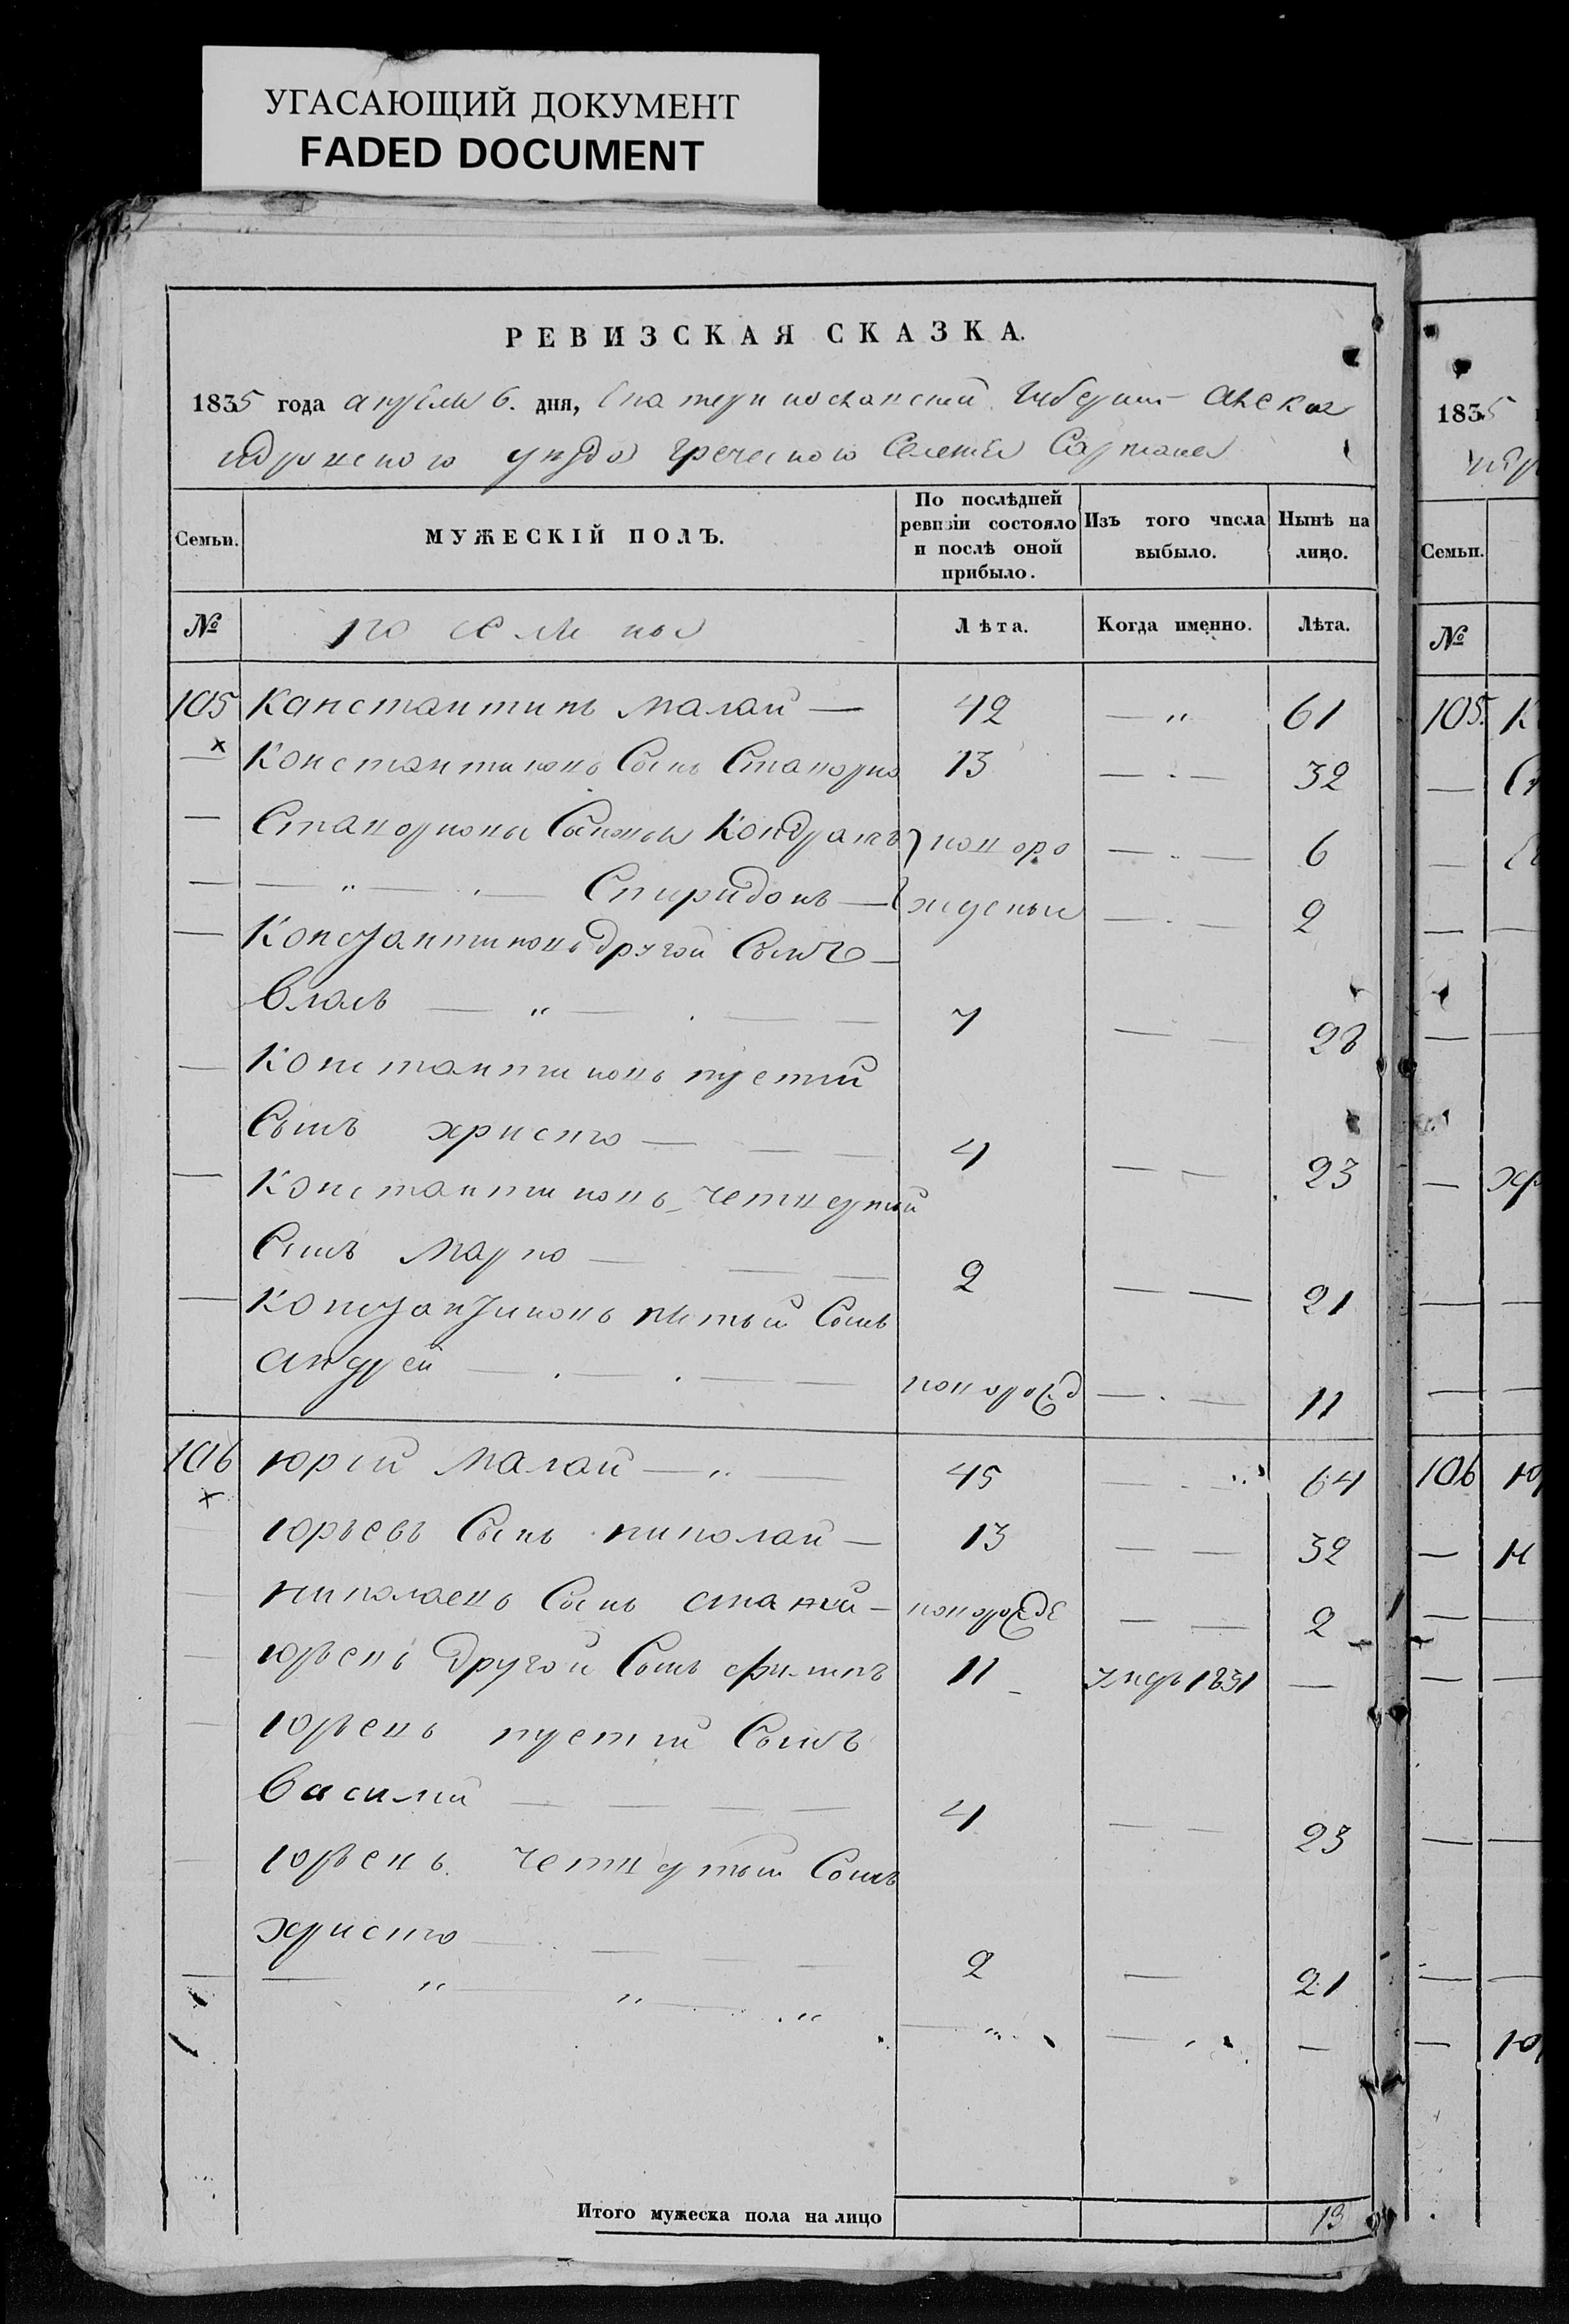 УГАСАЮЩИЙ ДОКУМЕНТ
FADED DOCUMENT
РЕВИЗСКАЯ СКАЗКА.
1835 года апреля 6. дня, Екатеринославской Губернии Алекса
ндровского уезда Греческого Селения Сартана
Семьи. МУЖЕСКІЙ ПОЛЪ. По послѣдней ревизіи состояло и послѣ оной прибыло. Изъ того числа выбыло. Нынѣ на лицо.
№ Лѣта. Когда именно. Лѣта.
105 Канстантинъ Малай — 42 — " 61
— Константиновъ Сынъ 13 — . — 32
— Сыновья Кондратъ } новоро — . — 6
— — " — . — Спиридонъ — { жденые — . — 2
— Константиновъ другой Сынъ —
Власъ — " — . — — 7 — — 28
— Константиновъ третий
Сынъ христо — — — 4 — — 23
— Константиновъ четвертый
Сынъ Марко — — — 2 — — 21
— Константиновъ пятый Сынъ
андрей — . — . — — новорожд — . — 11
106 юрий Малай — " — 45 — . — " 64
юрьевъ Сынъ николай — 13 — — 32
николаевъ Сынъ — новорожде — — 2
юрьевъ другой Сынъ 11 — 1831 —
юрьевъ третий Сынъ
Василий — — — — 4 — — 23
юрьевъ четвертый Сынъ
христо — — — — 2 — 21
— — " — " — . " — " — " —
Итого мужеска пола на лицо 13
1835
Семьи.
№
105.
106